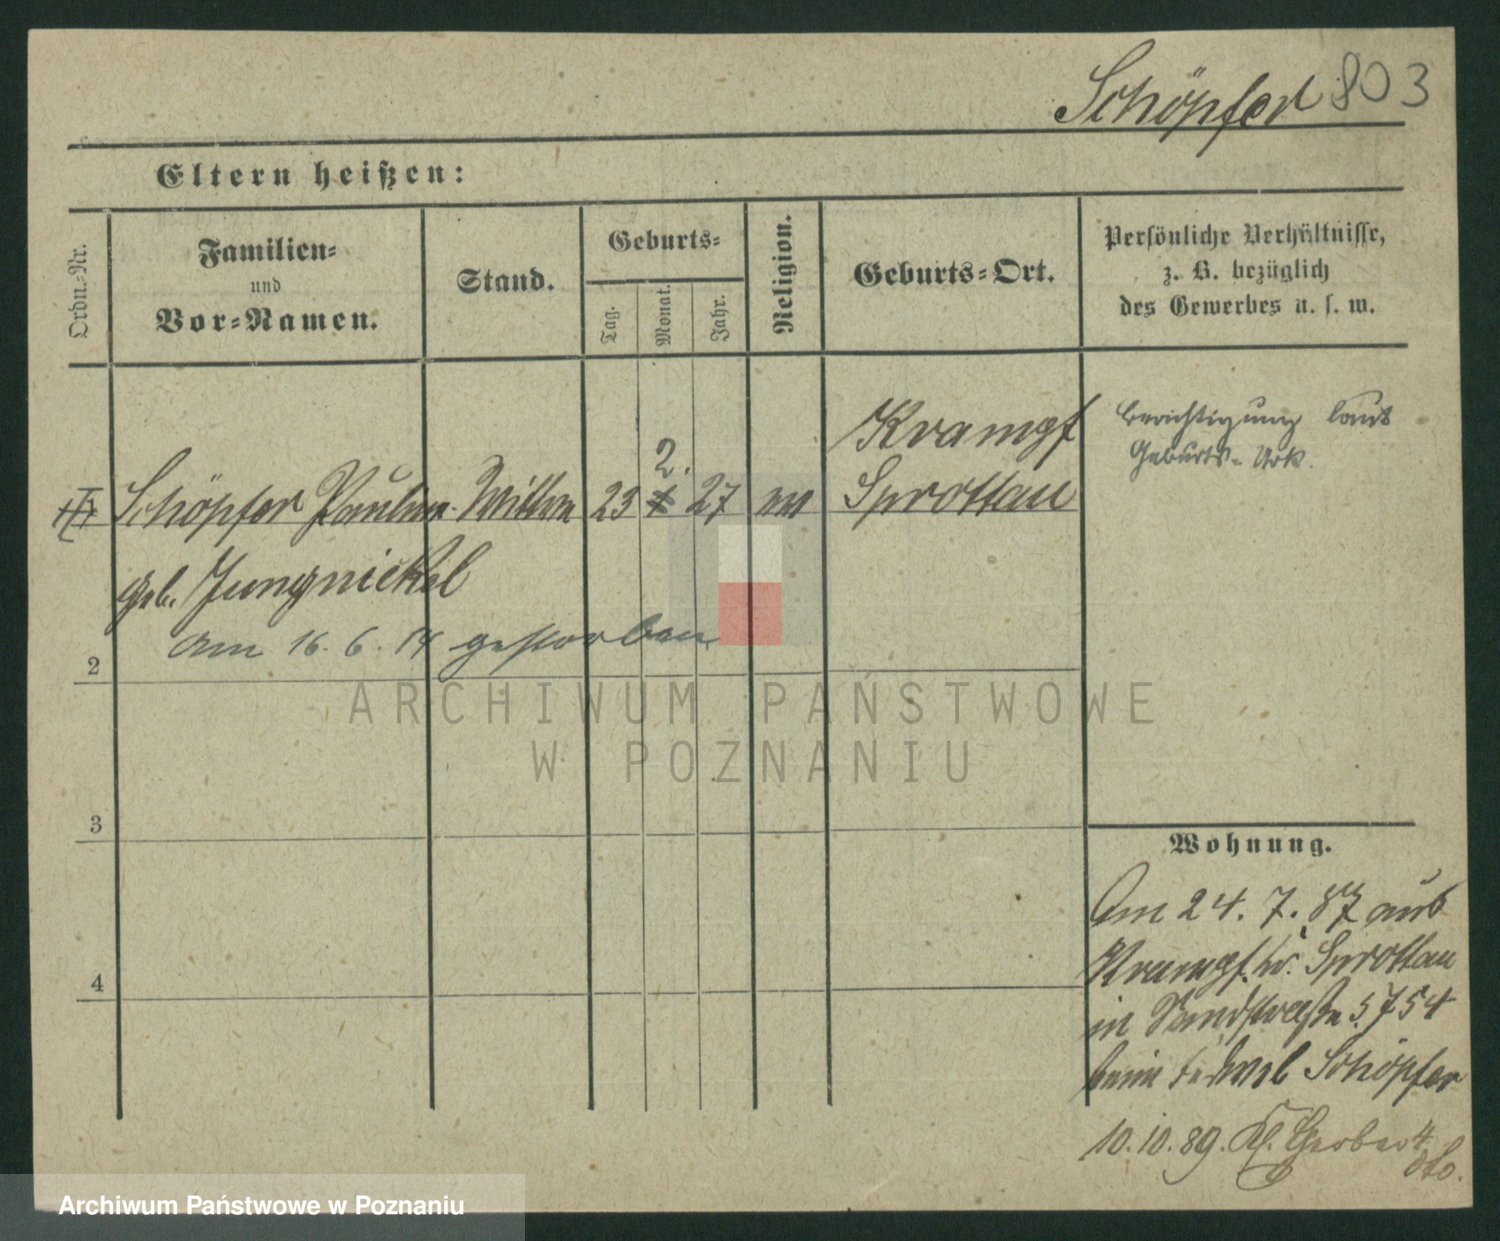 Schöpfer 803
Eltern heißen:
Ordn.-Nr.
Familien-
und
Vor-Namen.
Stand.
Geburts-
Tag.
Monat.
Jahr.
Religion.
Geburts-Ort.
Persönliche Verhältnisse,
z. B. bezüglich
des Gewerbes u. s. w.
Krampf
Berichtigung laut
Geburts-Urk.
2.
Schöpfer Pauline Wittwe 23 27 ev Sprottau
geb. Jungnickel
am 16. 6. 14 gestorben
2
3
4
Wohnung.
Am 24. 7. 87 aus
Krampf Sprottau
in Sandstraße
beim Schöpfer
10.10.89. Kl. Gerber 4
dto.
ARCHIWUM PAŃSTWOWE
W POZNANIU
Archiwum Państwowe w Poznaniu